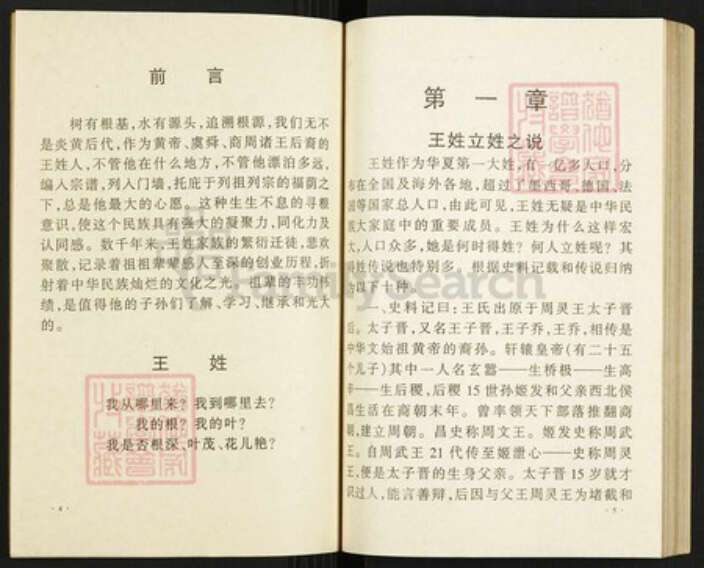 前 言
树有根基,水有源头,追溯根源,我们无不
是炎黄后代,作为黄帝、虞舜、商周诸王后裔的
王姓人,不管他在什么地方,不管他漂泊多远,
编入宗谱,列入门墙,托庇于列祖列宗的福荫之
下,总是他最大的心愿。这种生生不息的寻根
意识,使这个民族具有强大的凝聚力,同化力及
认同感。数千年来,王姓家族的繁衍迁徙,悲欢
聚散,记录着祖祖辈辈感人至深的创业历程,折
射着中华民族灿烂的文化之光。祖辈的丰功伟
绩,是值得他的子孙们了解、学习、继承和光大
的。
王 姓
我从哪里来?我到哪里去?
我的根?我的叶?
我是否根深、叶茂、花儿艳?
·4·
第 一 章
王姓立姓之说
王姓作为华夏第一大姓,有一亿多人口,分
布在全国及海外各地,超过了墨西哥、德国、法
国等国家总人口,由此可见,王姓无疑是中华民
族大家庭中的重要成员。王姓为什么这样宏
大,人口众多,她是何时得姓?何人立姓呢?其
得姓传说也特别多。根据史料记载和传说归纳
为以下十种。
一、史料记曰:王氏出原于周灵王太子晋
后。太子晋,又名王子晋,王子乔,王乔,相传是
中华文始祖黄帝的裔孙。轩辕皇帝(有二十五
个儿子)其中一人名玄嚣——生桥极——生高
——生后稷,后稷15世孙姬发和父亲西北侯
昌生活在商朝末年。曾率领天下部落推翻商
朝,建立周朝。昌史称周文王。姬发史称周武
王。自周武王21代传至姬泄心——史称周灵
王,便是太子晋的生身父亲。太子晋15岁就才
识过人,能言善辩,后因与父王周灵王为堵截和
·5·
FamilySearch